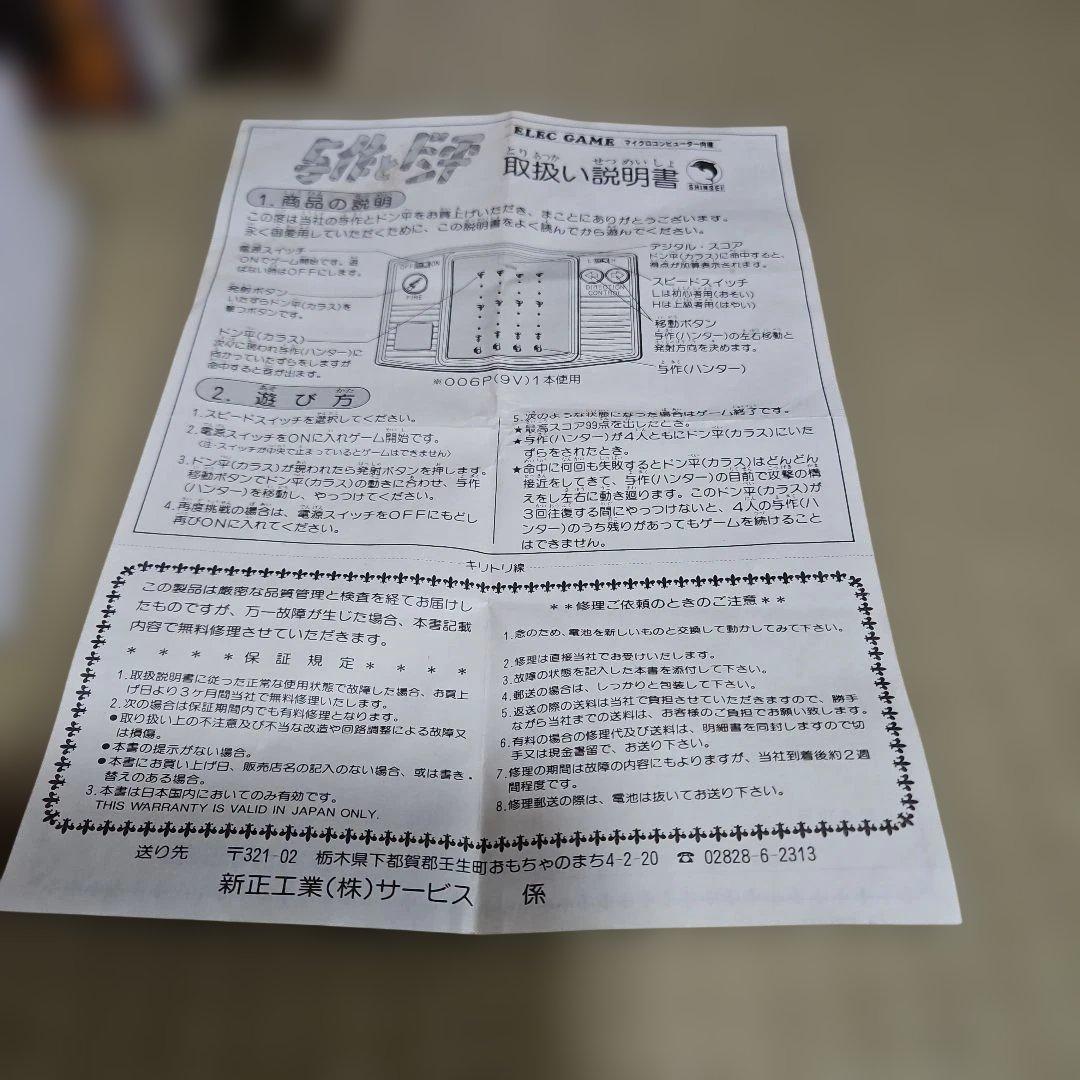 与作とドン平
ELEC GAME マイクロコンピューター内蔵
とりあつか せつめいしょ
取扱い説明書
SHINSEI
1. 商品の説明
この度は当社の与作とドン平をお買上げいただき、まことにありがとうございます。
永く御愛用していただくために、この説明書をよく読んでから遊んでください。
電源スイッチ
ONでゲーム開始です。遊
ばない時はOFFにします。
発射ボタン
いたずらドン平(カラス)を
撃つボタンです。
ドン平(カラス)
次々に現われ与作(ハンター)に
向かっていたずらをしますが
命中すると音が出ます。
OFF ON
FIRE
L H
DIRECTION
CONTROL
デジタル・スコア
ドン平(カラス)に命中すると、
得点が加算表示されます。
スピードスイッチ
Lは初心者用(おそい)
Hは上級者用(はやい)
移動ボタン
与作(ハンター)の左右移動と
発射方向を決めます。
与作(ハンター)
※006P(9V)1本使用
2. 遊び方
1.スピードスイッチを選択してください。
2.電源スイッチをONに入れゲーム開始です。
〈注・スイッチが中央で止まっているとゲームはできません〉
3.ドン平(カラス)が現われたら発射ボタンを押します。
移動ボタンでドン平(カラス)の動きに合わせ、与作
(ハンター)を移動し、やっつけてください。
4.再度挑戦の場合は、電源スイッチをOFFにもどし
再びONに入れてください。
5.次のような状態になった場合はゲーム終了です。
★最高スコア99点を出したとき。
★与作(ハンター)が4人ともにドン平(カラス)にいた
ずらをされたとき。
★命中に何回も失敗するとドン平(カラス)はどんどん
接近をしてきて、与作(ハンター)の目前で攻撃の構
えをし左右に動き廻ります。このドン平(カラス)が
3回往復する間にやっつけないと、4人の与作(ハ
ンター)のうち残りがあってもゲームを続けること
はできません。
キリトリ線
この製品は厳密な品質管理と検査を経てお届けし
たものですが、万一故障が生じた場合、本書記載
内容で無料修理させていただきます。
＊ ＊ ＊ ＊保 証 規 定＊ ＊ ＊ ＊
1.取扱説明書に従った正常な使用状態で故障した場合、お買上
げ日より3ヶ月間当社で無料修理いたします。
2.次の場合は保証期間内でも有料修理となります。
●取り扱い上の不注意及び不当な改造や回路調整による故障又
は損傷。
●本書の提示がない場合。
●本書にお買い上げ日、販売店名の記入のない場合、或は書き
替えのある場合。
3.本書は日本国内においてのみ有効です。
THIS WARRANTY IS VALID IN JAPAN ONLY.
＊＊修理ご依頼のときのご注意＊＊
1.念のため、電池を新しいものと交換して動かしてみて下さい。
2.修理は直接当社でお受けいたします。
3.故障の状態を記入した本書を添付して下さい。
4.郵送の場合は、しっかりと包装して下さい。
5.返送の際の送料は当社で負担させていただきますので、勝手
ながら当社までの送料は、お客様のご負担でお願い致します。
6.有料の場合の修理代及び送料は、明細書を同封しますので切
手又は現金書留で、お送り下さい。
7.修理の期間は故障の内容にもよりますが、当社到着後約2週
間程度です。
8.修理郵送の際は、電池は抜いてお送り下さい。
送り先 〒321-02 栃木県下都賀郡壬生町おもちゃのまち4-2-20 ☎ 02828-6-2313
新正工業(株)サービス 係